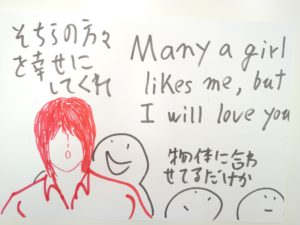 そちらの方々
を幸せに
してくれ
Many a girl
likes me, but
I will love you
物体に合わ
せてるだけか